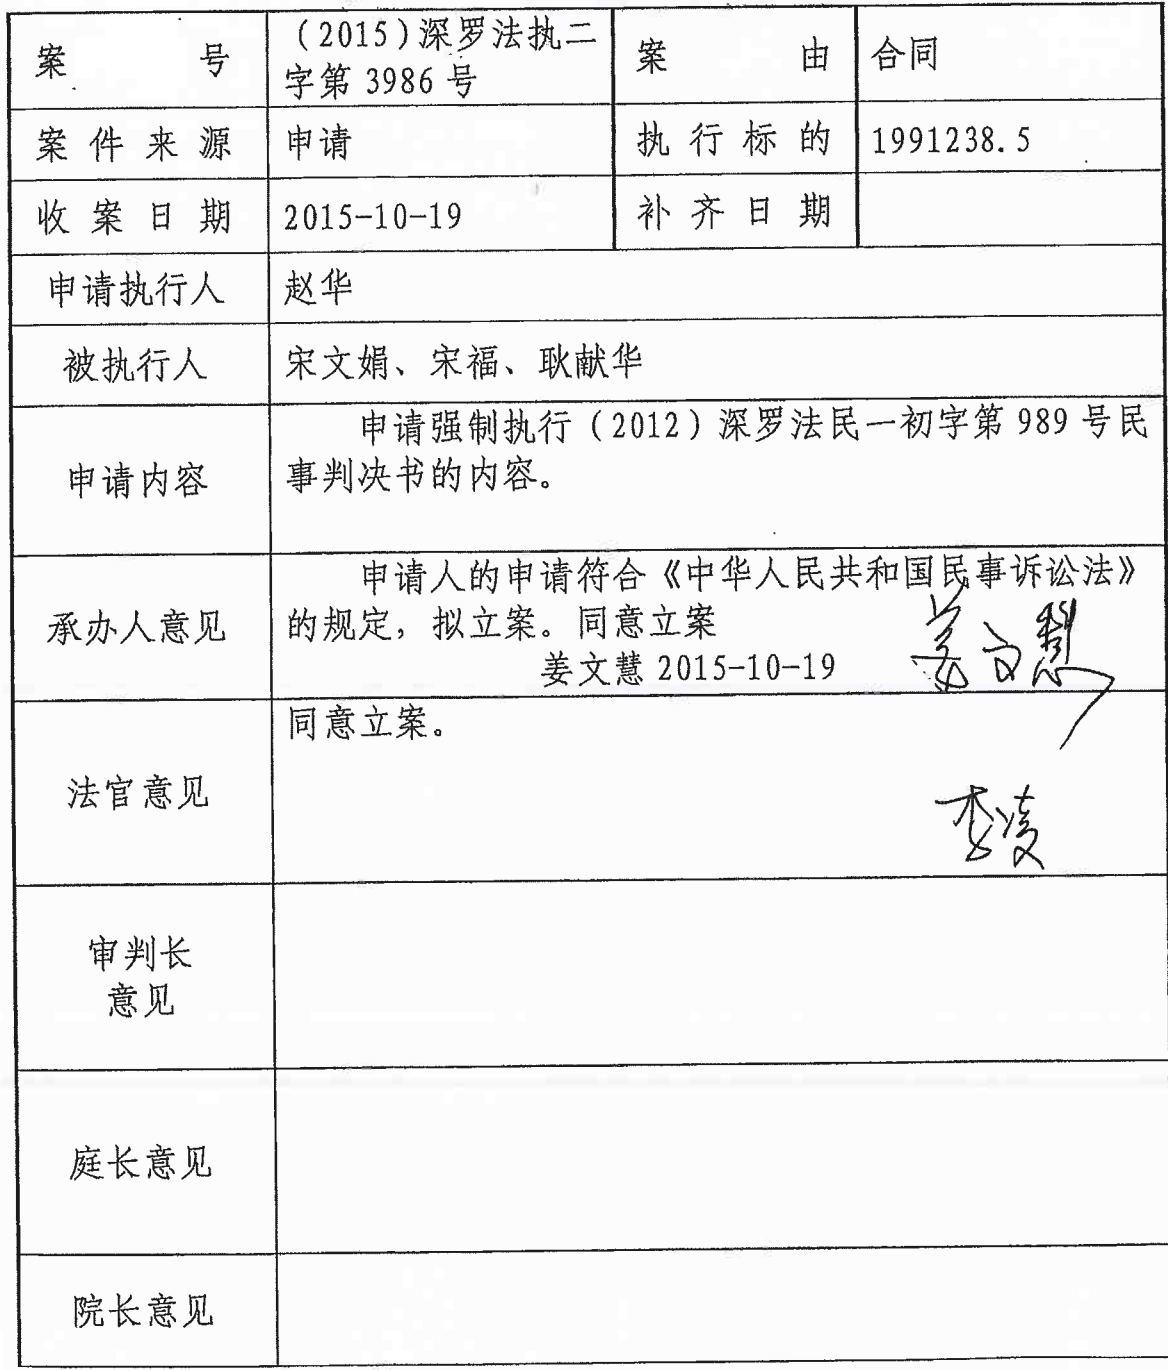 案 号 (2015)深罗法执二 案 由 合同
字第 3986 号
案 件 来 源 申请 执 行 标 的 1991238.5
收 案 日 期 2015-10-19 补 齐 日 期
申请执行人 赵华
被执行人 宋文娟、宋福、耿献华
申请强制执行(2012)深罗法民一初字第 989 号民
申请内容 事判决书的内容。
申请人的申请符合《中华人民共和国民事诉讼法》
承办人意见 的规定，拟立案。同意立案
姜文慧 2015-10-19 姜文慧
同意立案。
法官意见
李凌
审判长
意见
庭长意见
院长意见